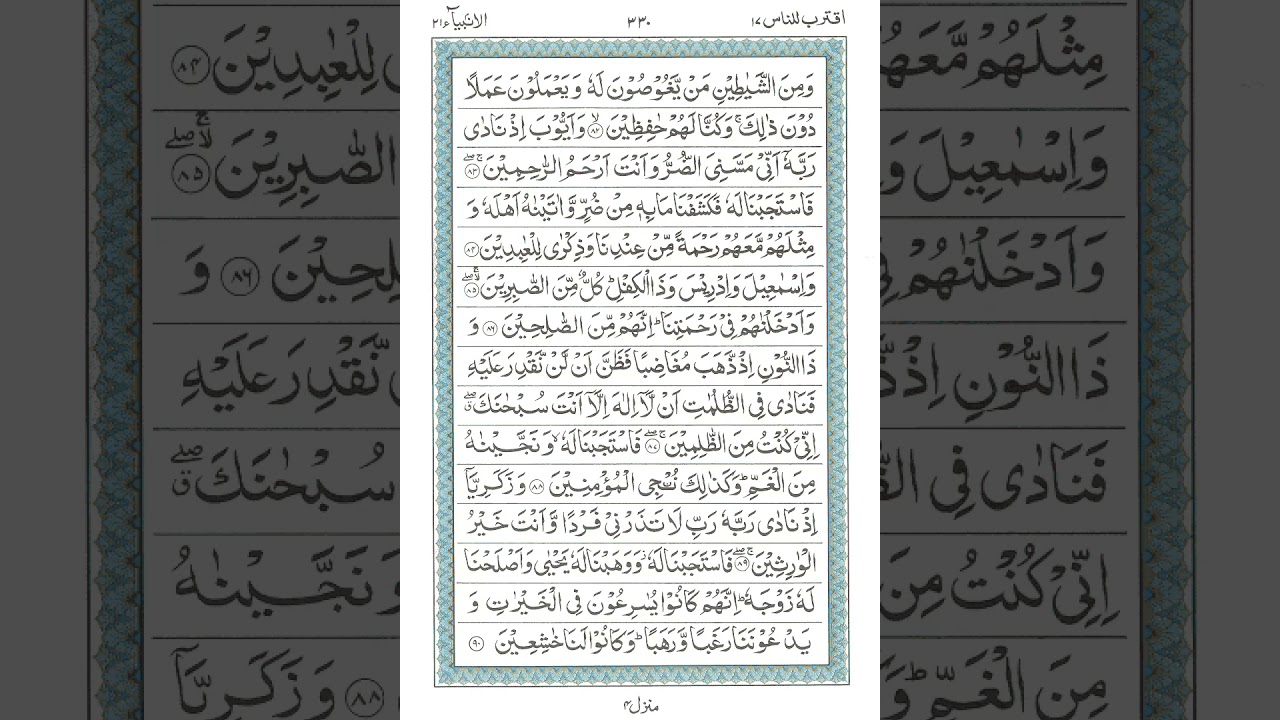 اقترب للناس ١٧
٣٣٠
الانبیآء ٢١
وَمِنَ الشَّيٰطِيْنِ مَنْ يَّغُوْصُوْنَ لَهٗ وَيَعْمَلُوْنَ عَمَلًا
دُوْنَ ذٰلِكَ ۚ وَكُنَّا لَهُمْ حٰفِظِيْنَ ۙ‏﴿٨٢﴾ وَاَيُّوْبَ اِذْ نَادٰى
رَبَّهٗۤ اَنِّىْ مَسَّنِىَ الضُّرُّ وَاَنْتَ اَرْحَمُ الرّٰحِمِيْنَ ۚۖ‏﴿٨٣﴾
فَاسْتَجَبْنَا لَهٗ فَكَشَفْنَا مَا بِهٖ مِنْ ضُرٍّ وَّاٰتَيْنٰهُ اَهْلَهٗ وَ
مِثْلَهُمْ مَّعَهُمْ رَحْمَةً مِّنْ عِنْدِنَا وَذِكْرٰى لِلْعٰبِدِيْنَ ‏﴿٨٤﴾
وَاِسْمٰعِيْلَ وَاِدْرِيْسَ وَذَا الْكِفْلِ ؕ كُلٌّ مِّنَ الصّٰبِرِيْنَ ۚۖ‏﴿٨٥﴾
وَاَدْخَلْنٰهُمْ فِىْ رَحْمَتِنَا ؕ اِنَّهُمْ مِّنَ الصّٰلِحِيْنَ ‏﴿٨٦﴾ وَ
ذَا النُّوْنِ اِذْ ذَّهَبَ مُغَاضِبًا فَظَنَّ اَنْ لَّنْ نَّقْدِرَ عَلَيْهِ
فَنَادٰى فِى الظُّلُمٰتِ اَنْ لَّاۤ اِلٰهَ اِلَّاۤ اَنْتَ سُبْحٰنَكَ ۖق
اِنِّىْ كُنْتُ مِنَ الظّٰلِمِيْنَ ۚۖ‏﴿٨٧﴾ فَاسْتَجَبْنَا لَهٗ ۙ وَنَجَّيْنٰهُ
مِنَ الْغَمِّ ؕ وَكَذٰلِكَ نُـنْجِى الْمُؤْمِنِيْنَ ‏﴿٨٨﴾ وَزَكَرِيَّاۤ
اِذْ نَادٰى رَبَّهٗ رَبِّ لَا تَذَرْنِىْ فَرْدًا وَّاَنْتَ خَيْرُ
الْوٰرِثِيْنَ ۚۖ‏﴿٨٩﴾ فَاسْتَجَبْنَا لَهٗ وَوَهَبْنَا لَهٗ يَحْيٰى وَاَصْلَحْنَا
لَهٗ زَوْجَهٗ ؕ اِنَّهُمْ كَانُوْا يُسٰرِعُوْنَ فِى الْخَيْرٰتِ وَ
يَدْعُوْنَنَا رَغَبًا وَّرَهَبًا ؕ وَكَانُوْا لَنَا خٰشِعِيْنَ ‏﴿٩٠﴾
منزل ٤